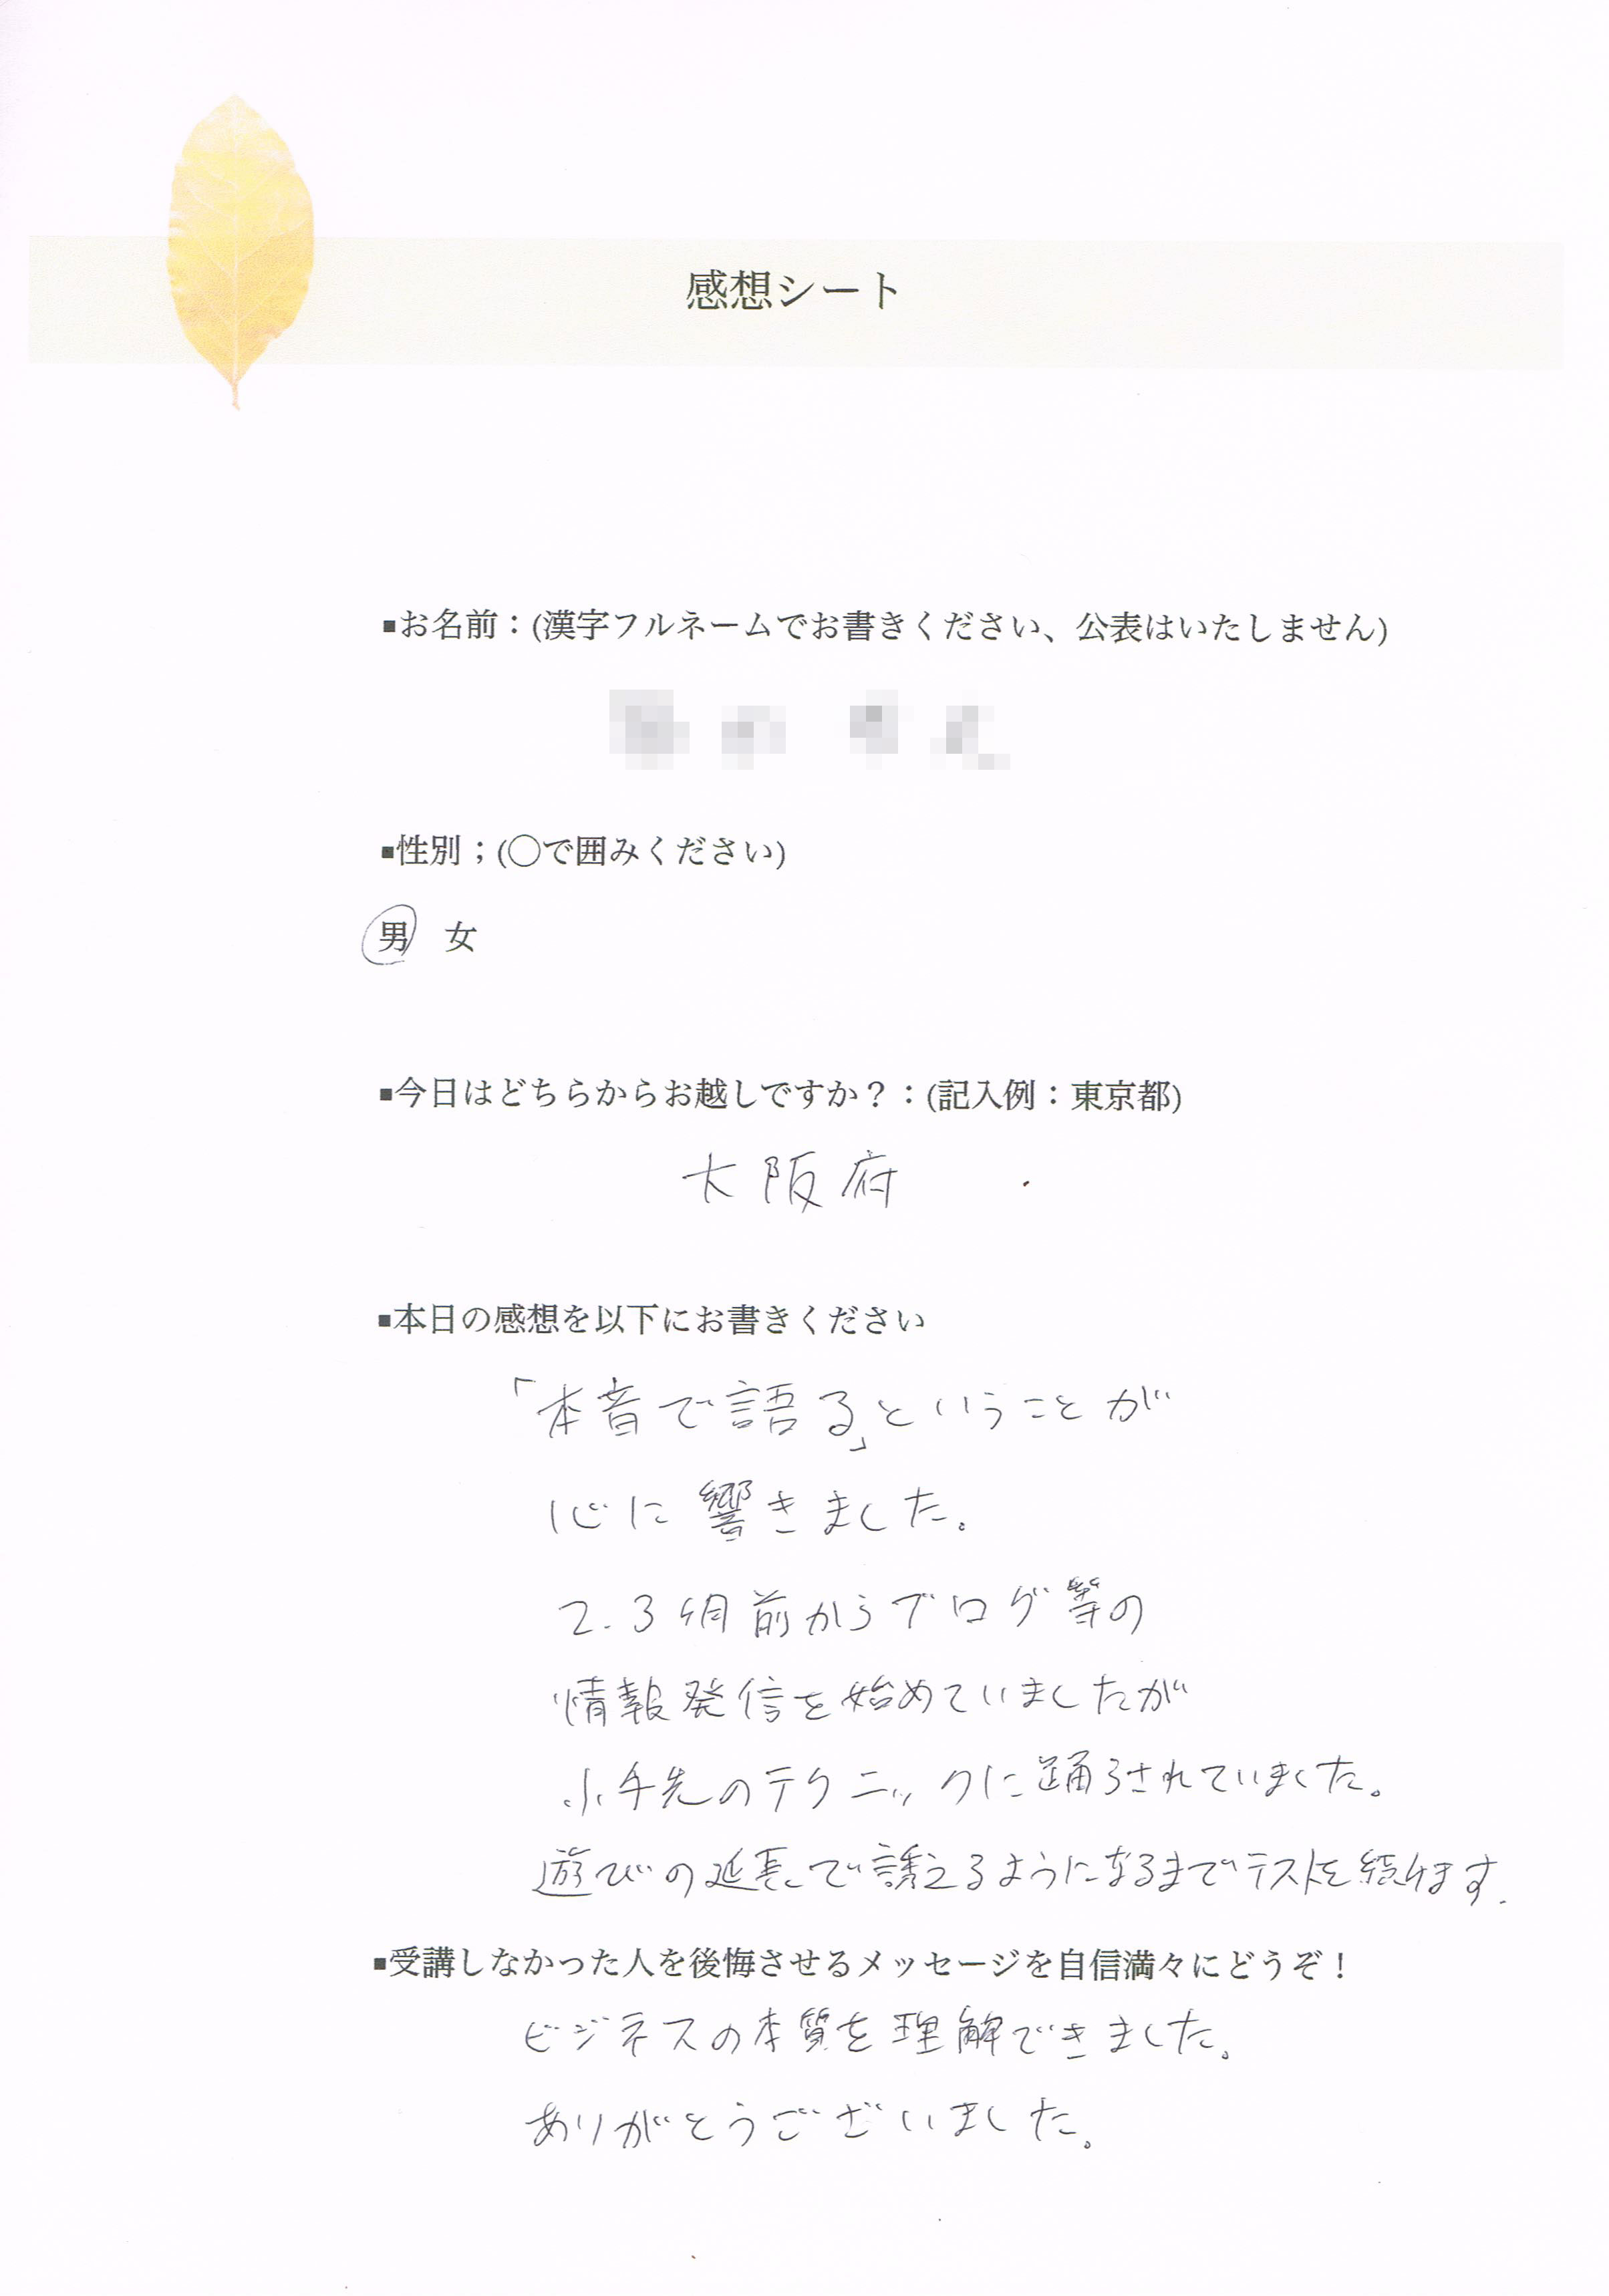 感想シート
■お名前：(漢字フルネームでお書きください、公表はいたしません)
■性別；(◯で囲みください)
男 女
■今日はどちらからお越しですか？：(記入例：東京都)
大阪府
■本日の感想を以下にお書きください
「本音で語る」ということが
心に響きました。
2.3ヶ月前からブログ等の
情報発信を始めていましたが
小手先のテクニックに踊らされていました。
遊びの延長で誘えるようになるまでテストを続けます.
■受講しなかった人を後悔させるメッセージを自信満々にどうぞ！
ビジネスの本質を理解できました。
ありがとうございました。